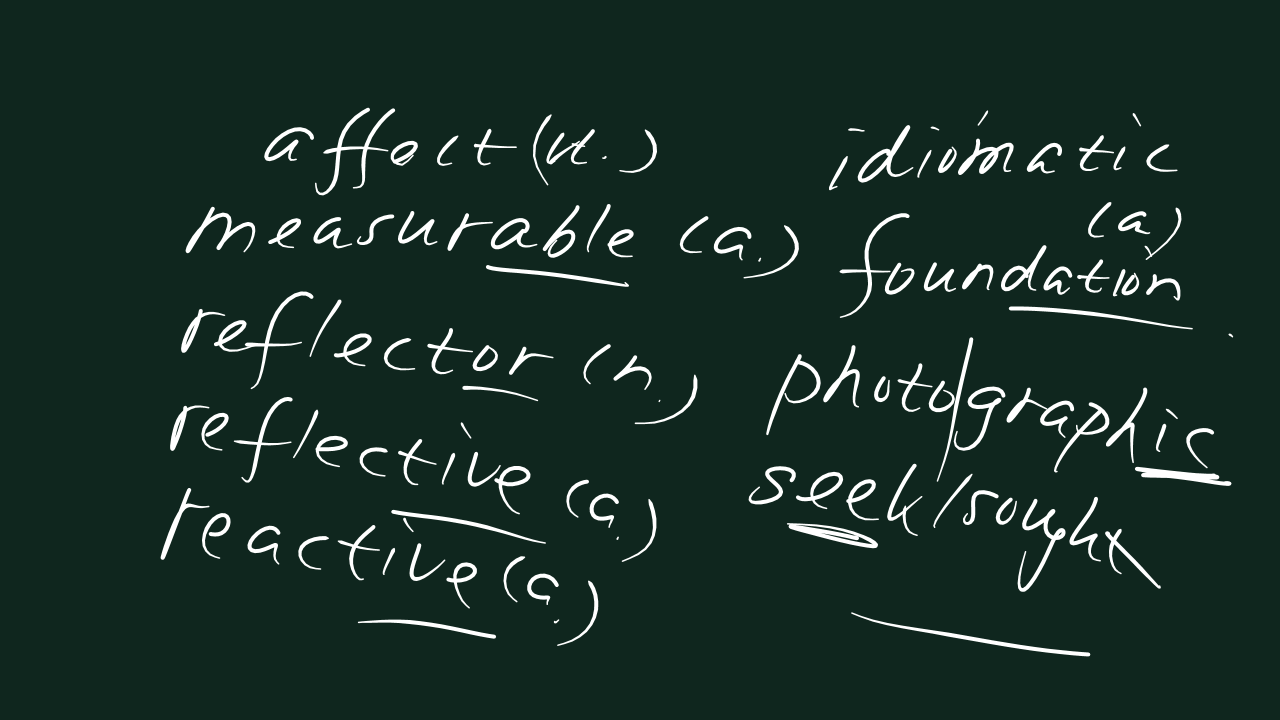 affect (vt.)
measurable (a.)
reflector (n.)
reflective (a.)
reactive (a.)
idiomatic
(a)
foundation
photo/graphic
seek/sought